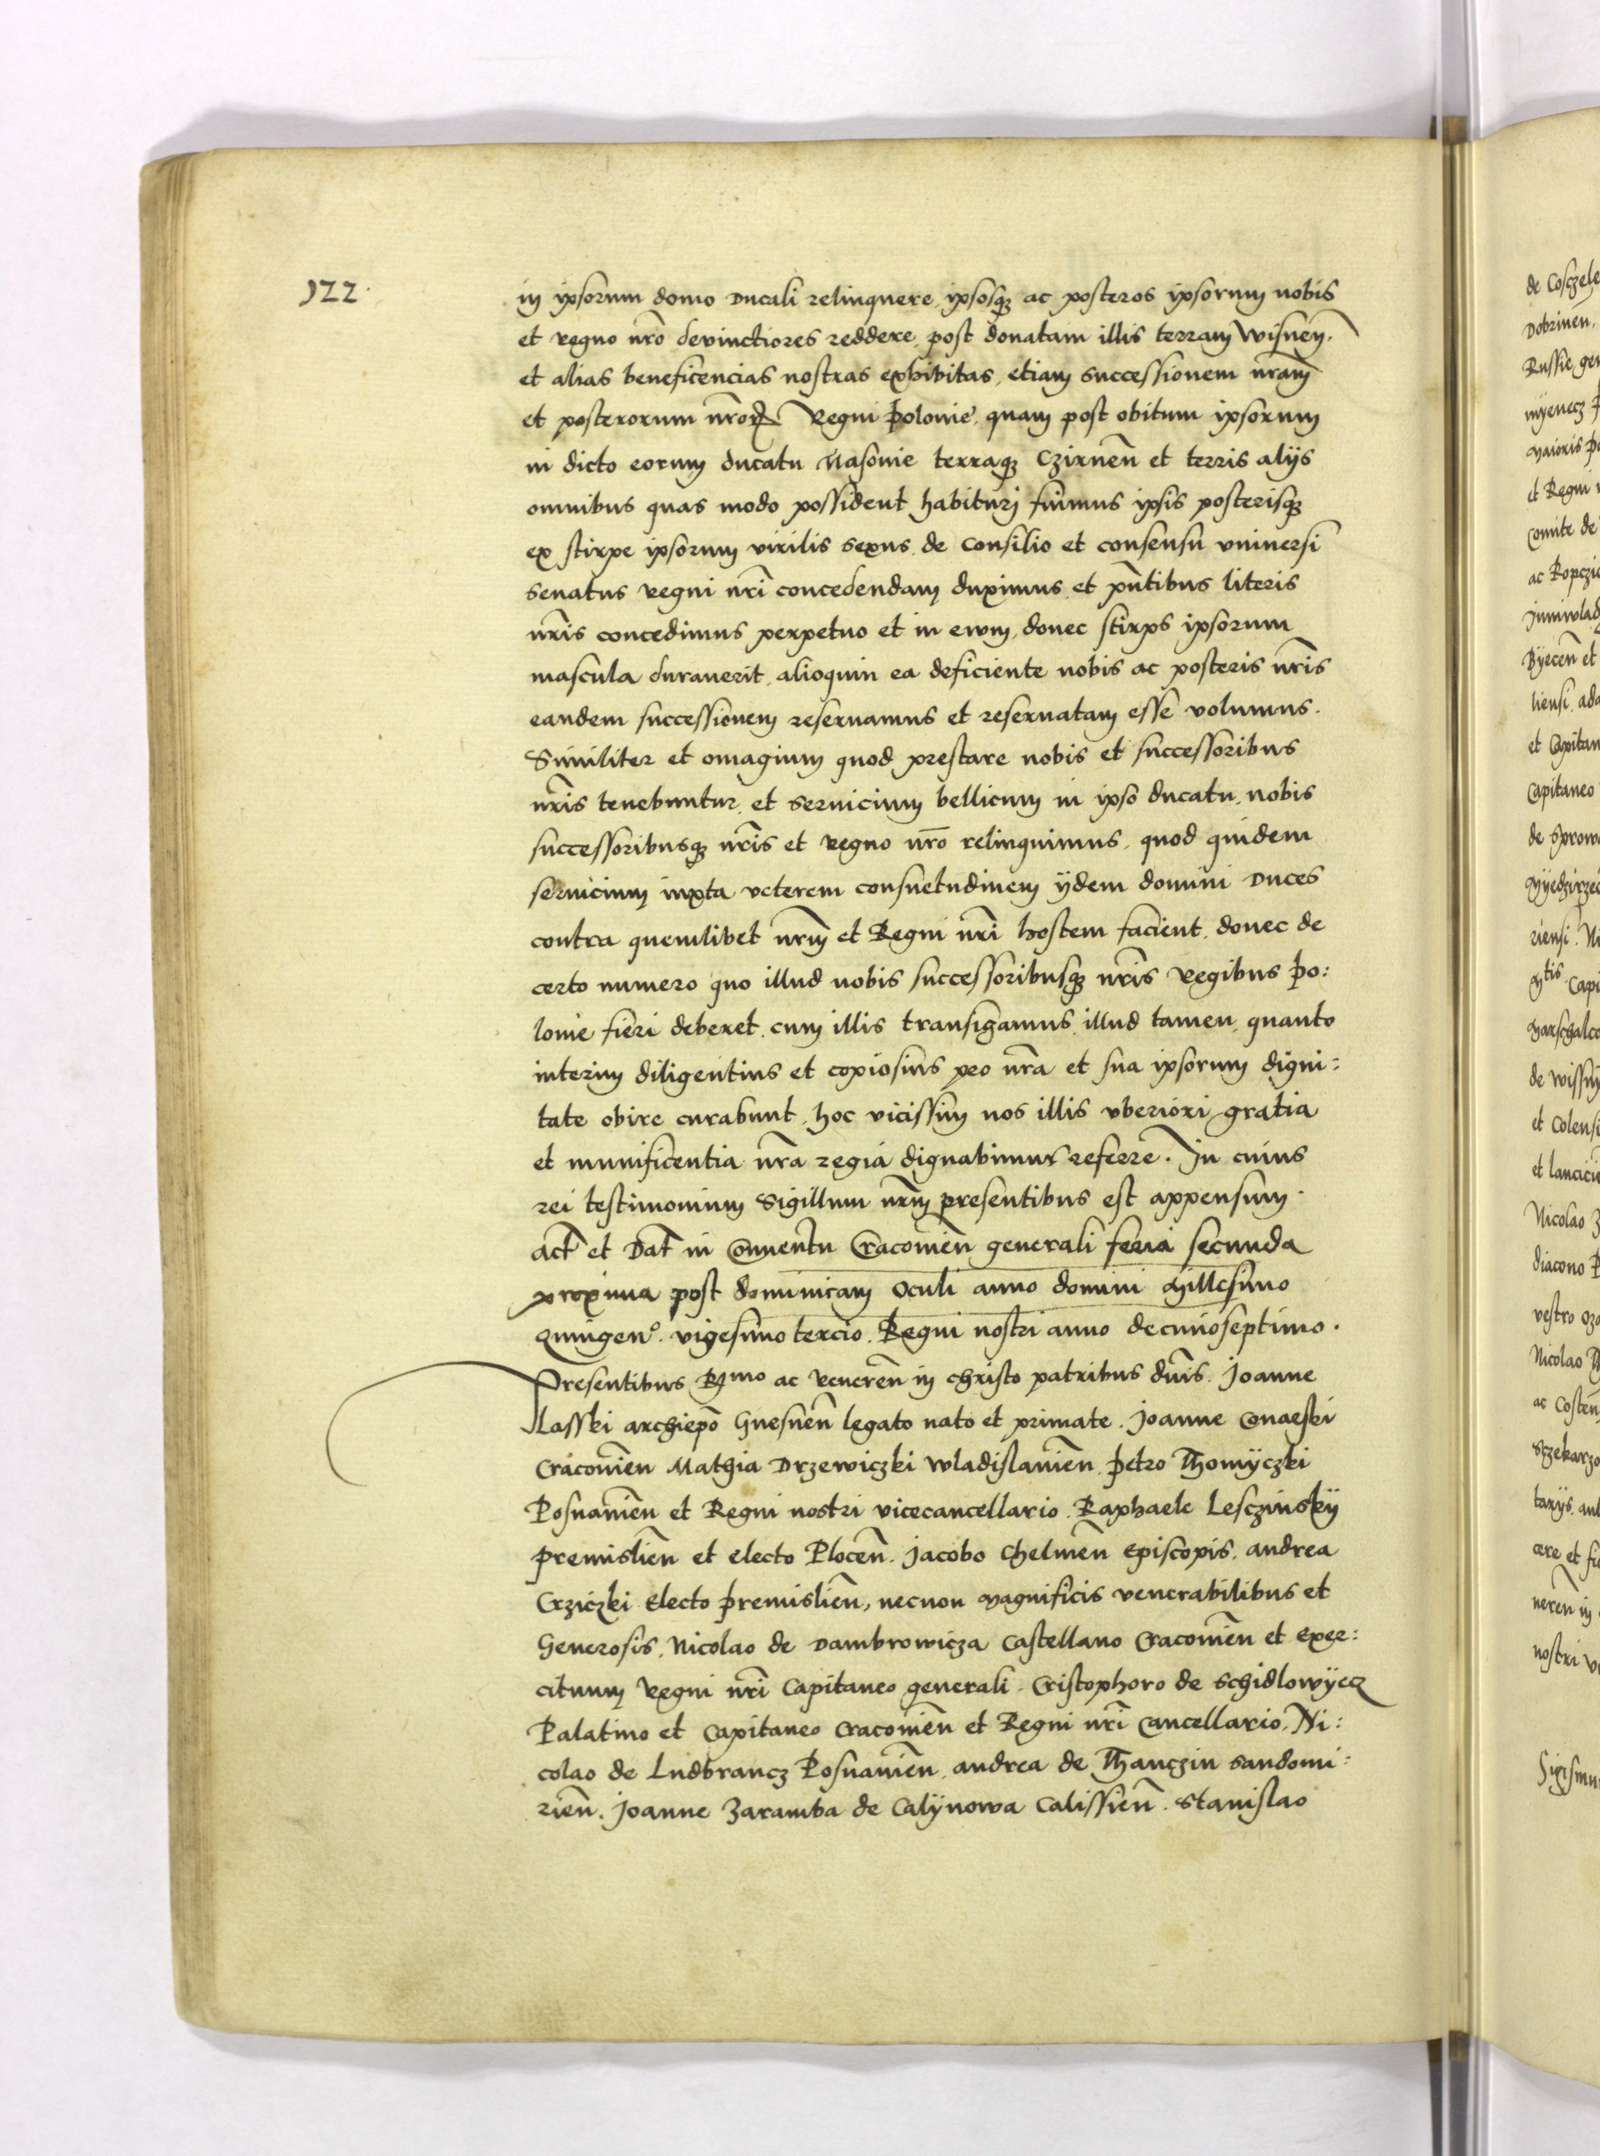 122.
in ipsorum domo Ducali relinquere, ipsosqꝫ ac posteros ipsorum nobis
et regno nr̃o devinctiores reddere, post donatam illis terram Wisneñ.
et alias beneficencias nostras exhibitas, etiam successionem nr̃am
et posterorum nr̃oꝝ Regni Polonie, quam post obitum ipsorum
in dicto eorum ducatu Masovie terraqꝫ Czirneñ et terris alijs
omnibus quas modo possident habituri fuimus ipsis posterisqꝫ
ex stirpe ipsorum virilis sexus, de consilio et consensu universi
senatus regni nr̃i concedendam duximus, et pñtibus literis
nr̃is concedimus perpetuo et in ewm, donec stirps ipsorum
mascula duraverit, alioquin ea deficiente nobis ac posteris nr̃is
eandem successionem reservamus et reservatam esse volumus.
Similiter et omagium quod prestare nobis et successoribus
nr̃is tenebuntur, et servicium bellicum in ipso ducatu, nobis
successoribusqꝫ nr̃is et regno nr̃o relinquimus, quod quidem
servicium iuxta veterem consuetudinem ijdem domini Duces
contra quemlibet nr̃m et Regni nr̃i hostem facient, donec de
certo numero quo illud nobis successoribusqꝫ nr̃is Regibus Po:
lonie fieri deberet, cum illis transigamus, illud tamen, quanto
interim diligentius et copiosius pro nr̃a et sua ipsorum digni:
tate obire curabunt, hoc vicissim nos illis uberiori gratia
et munificentia nr̃a regia dignabimur referre. In cuius
rei testimonium Sigillum nr̃m presentibus est appensum.
Act̃ et Dat̃ in Conventu Cracovieñ generali feria secunda
proxima post dominicam Oculi anno domini Millesimo
Quingenᵒ. vigesimo tercio. Regni nostri anno decimoseptimo.
Presentibus Rᵐᵒ ac Venereñ in christo patribus dñis. Joanne
Lasski archiepõ Gnesneñ legato nato et primate. Joanne Conarski
Cracovieñ Mathia Drzewiczki Wladislavieñ, Petro Thomyczki
Posnanieñ et Regni nostri vicecancellario. Raphaele Lesczinskij
Premislieñ et electo Ploceñ. Jacobo Chelmeñ Episcopis, andrea
Crziczki Electo Premislieñ, necnon Magnificis venerabilibus et
Generosis, Nicolao de Dambrowicza Castellano Cracovieñ et Exer:
cituum Regni nr̃i Capitaneo generali. Cristophoro de Schidlowyecz
Palatino et Capitaneo Cracovieñ et Regni nr̃i Cancellario, Ni:
colao de Ludbrancz Posnanieñ, andrea de Thanczin Sandomi:
rieñ. Joanne Zaramba de Calijnowa Calissieñ. Stanislao
de Cosczele
Dobrinen.
Russie
Maioris
et Regni
comite de
Byeceñ et
et Capitan
Capitaneo
de
et Colensi
Nicolao
diacono
vestro
Nicolao
nostri
Sigismu